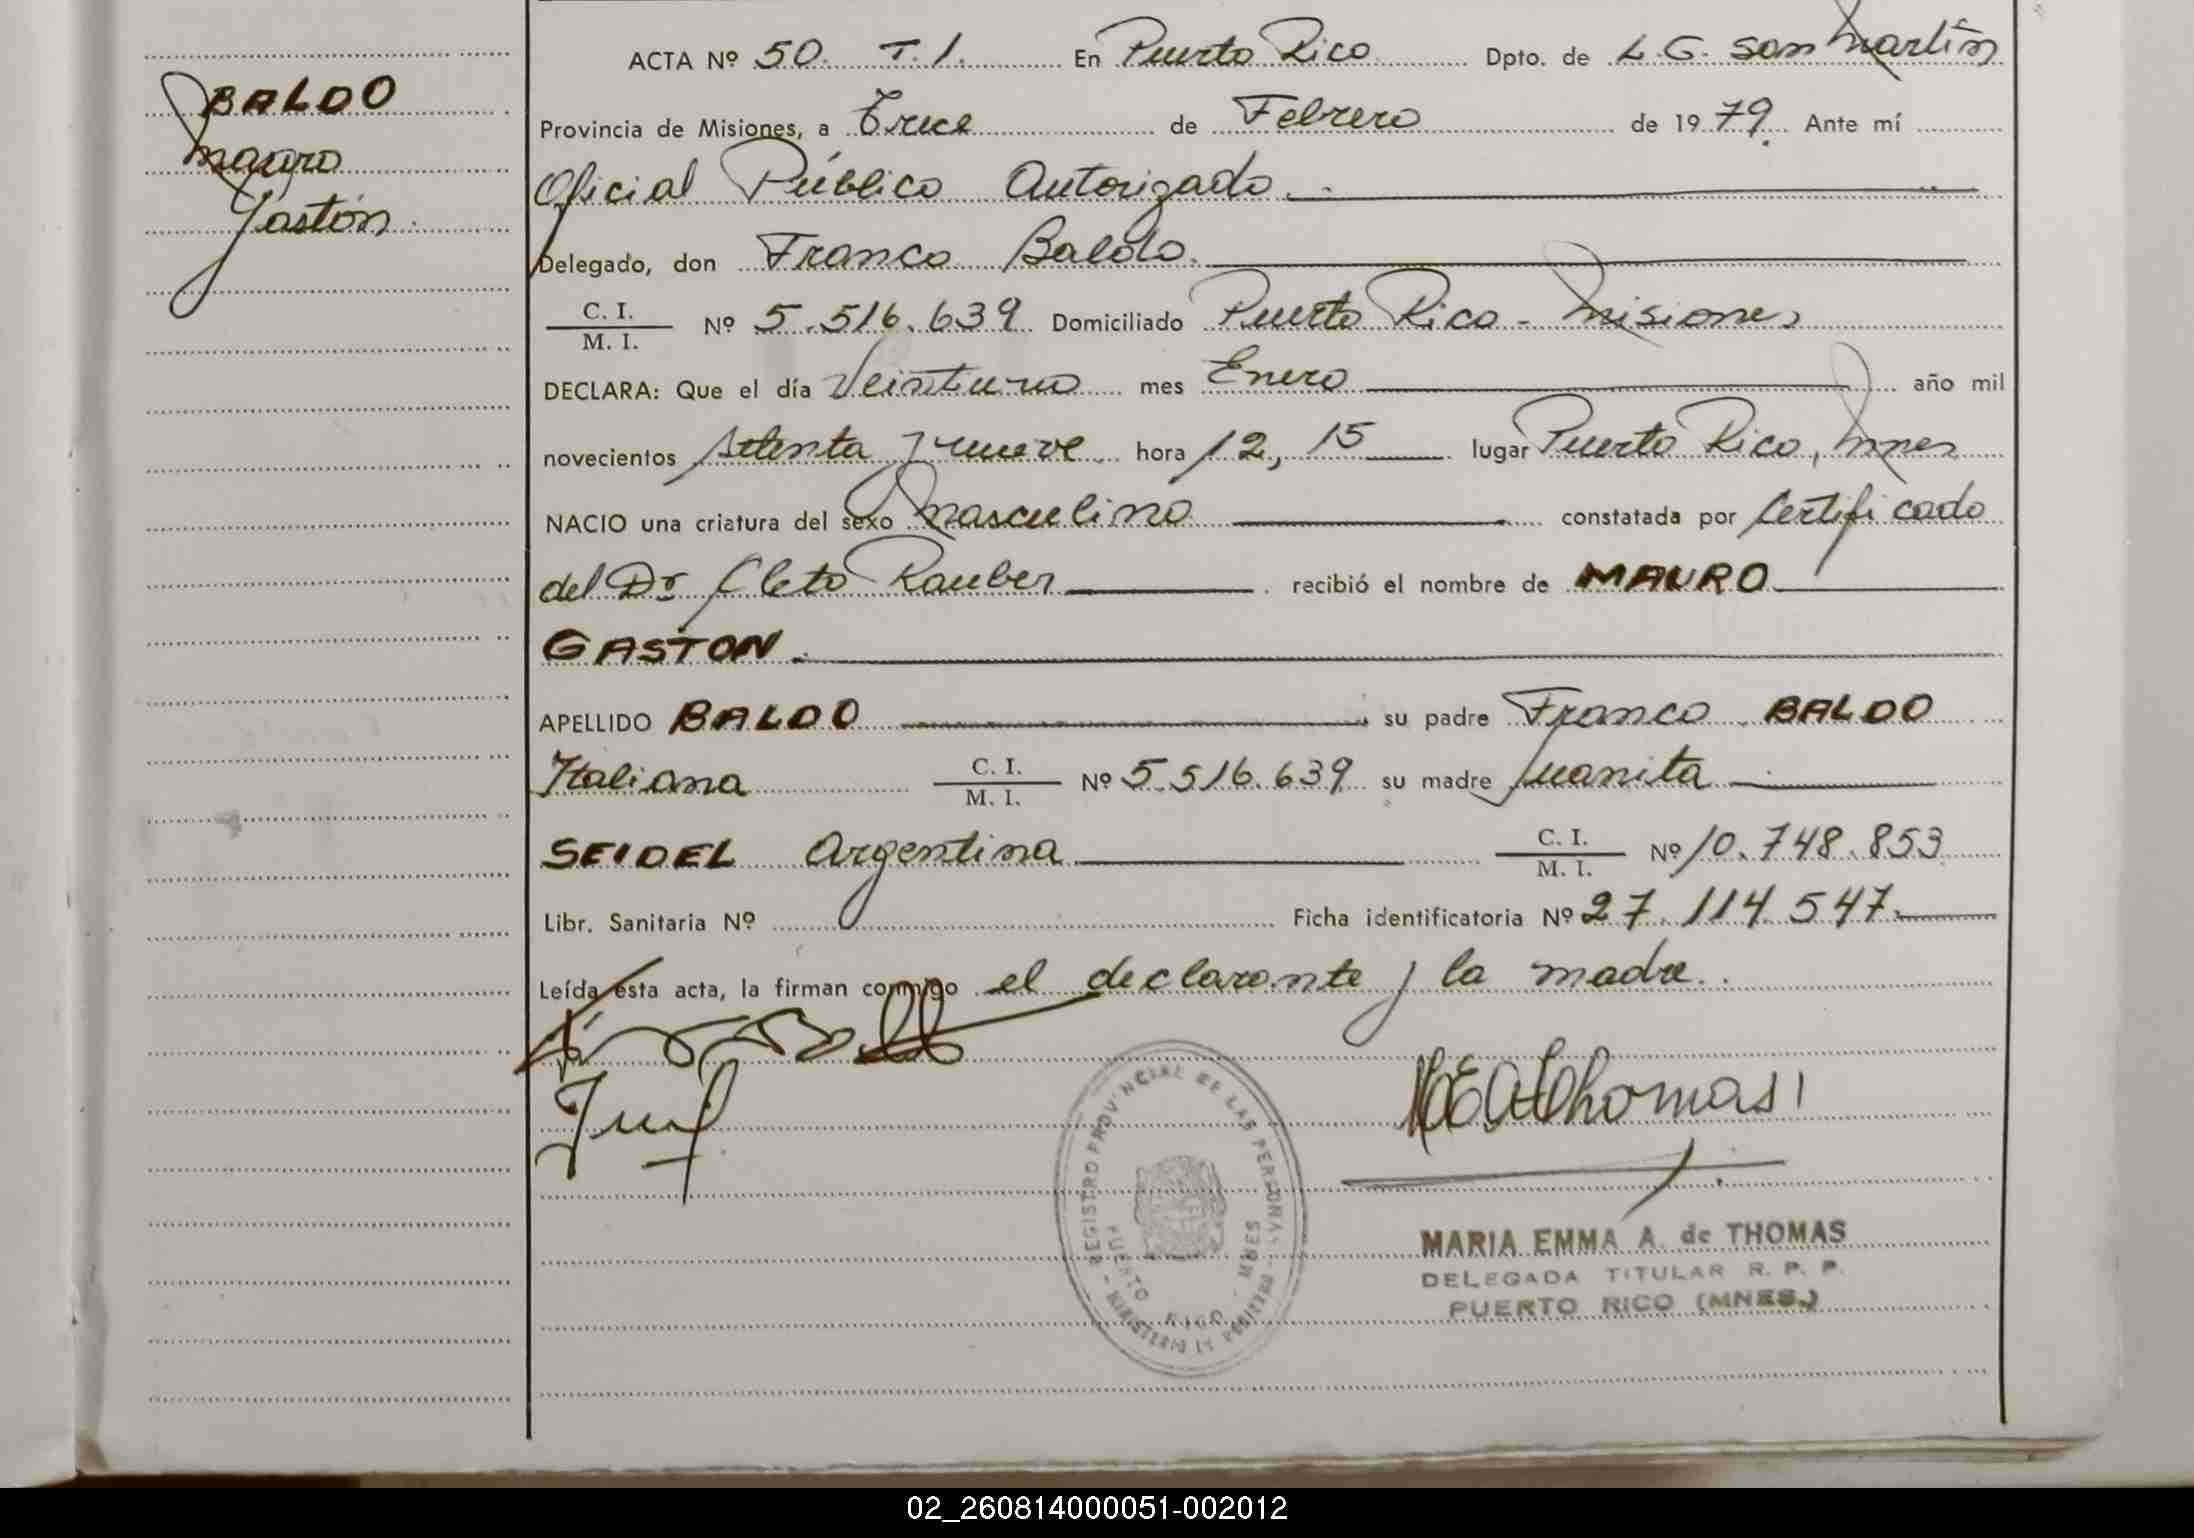 BALDO
Mauro
Gastón.
ACTA Nº 50. T.1. En Puerto Rico Dpto. de L.G. San Martín
Provincia de Misiones, a Trece de Febrero de 1979. Ante mí
Oficial Público Autorizado.
Delegado, don Franco Baldo.
C. I.
M. I. Nº 5.516.639 Domiciliado Puerto Rico - Misiones
DECLARA: Que el día Veintiuno mes Enero año mil
novecientos setenta y nueve hora 12,15 lugar Puerto Rico, Mnes
NACIO una criatura del sexo Masculino constatada por Certificado
del Dr Cleto Rauber recibió el nombre de MAURO
GASTON.
APELLIDO BALDO su padre Franco BALDO
Italiana C. I.
M. I. Nº 5.516.639 su madre Juanita
SEIDEL Argentina C. I.
M. I. Nº 10.748.853
Libr. Sanitaria Nº Ficha identificatoria Nº 27.114.547.
Leída esta acta, la firman conmigo el declarante y la madre.
REGISTRO PROVINCIAL DE LAS PERSONAS
PUERTO RICO - MNES
MEAThomas
MARIA EMMA A. de THOMAS
DELEGADA TITULAR R. P. P.
PUERTO RICO (MNES.)
02_260814000051-002012